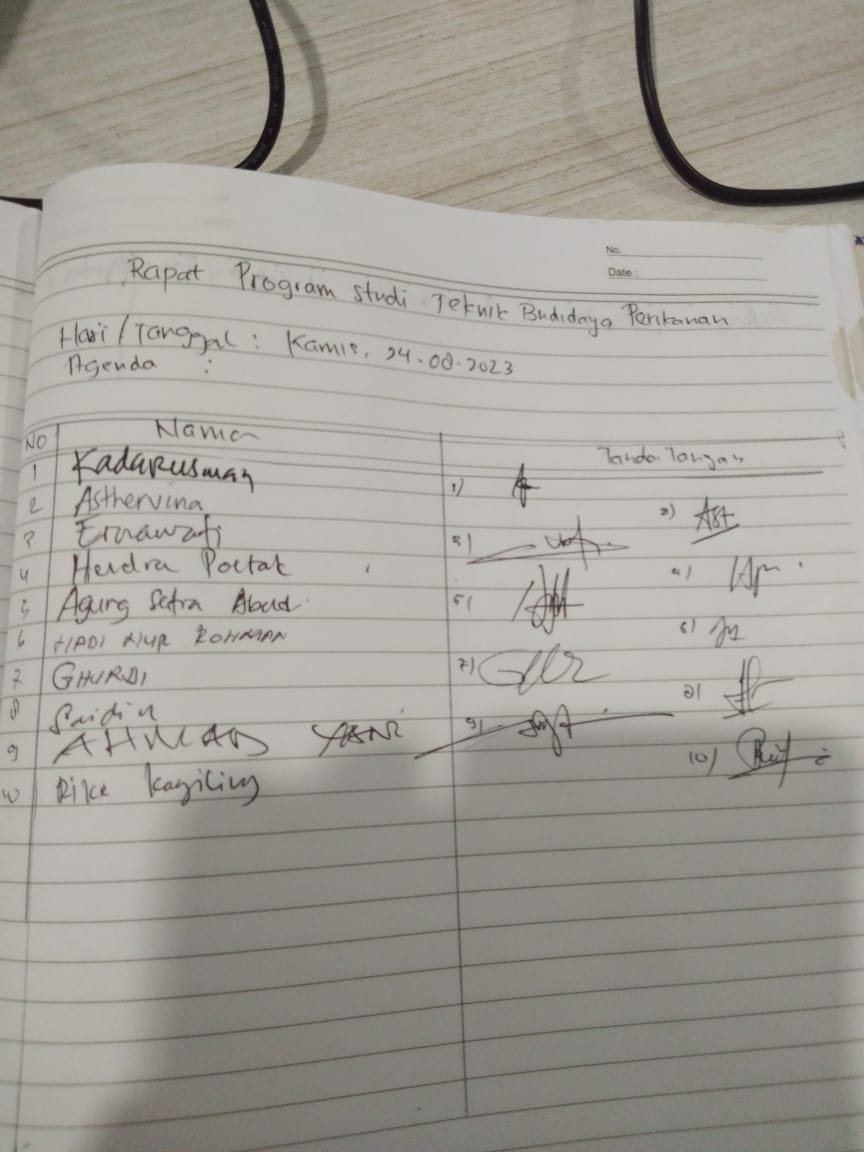 No.
Date :
Rapat Program Studi Teknik Budidaya Perikanan
Hari / Tanggal : Kamis, 24.08.2023
Agenda :
No Nama Tanda Tangan
1 Kadarusman 1)
2 Asthervina 2) Ast
3 Ernawati 3)
4 Hendra Poltak 4)
5 Agung Setia Abadi 5)
6 HADI NUR ROHMAN 6)
7 GHURDI 7)
8 Saidin 8)
9 AHMAD YANI 9)
10 Rike Kagiling 10)